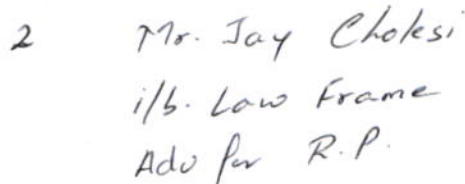 2 Mr. Jay Choksi
i/b. Law Frame
Adv for R.P.